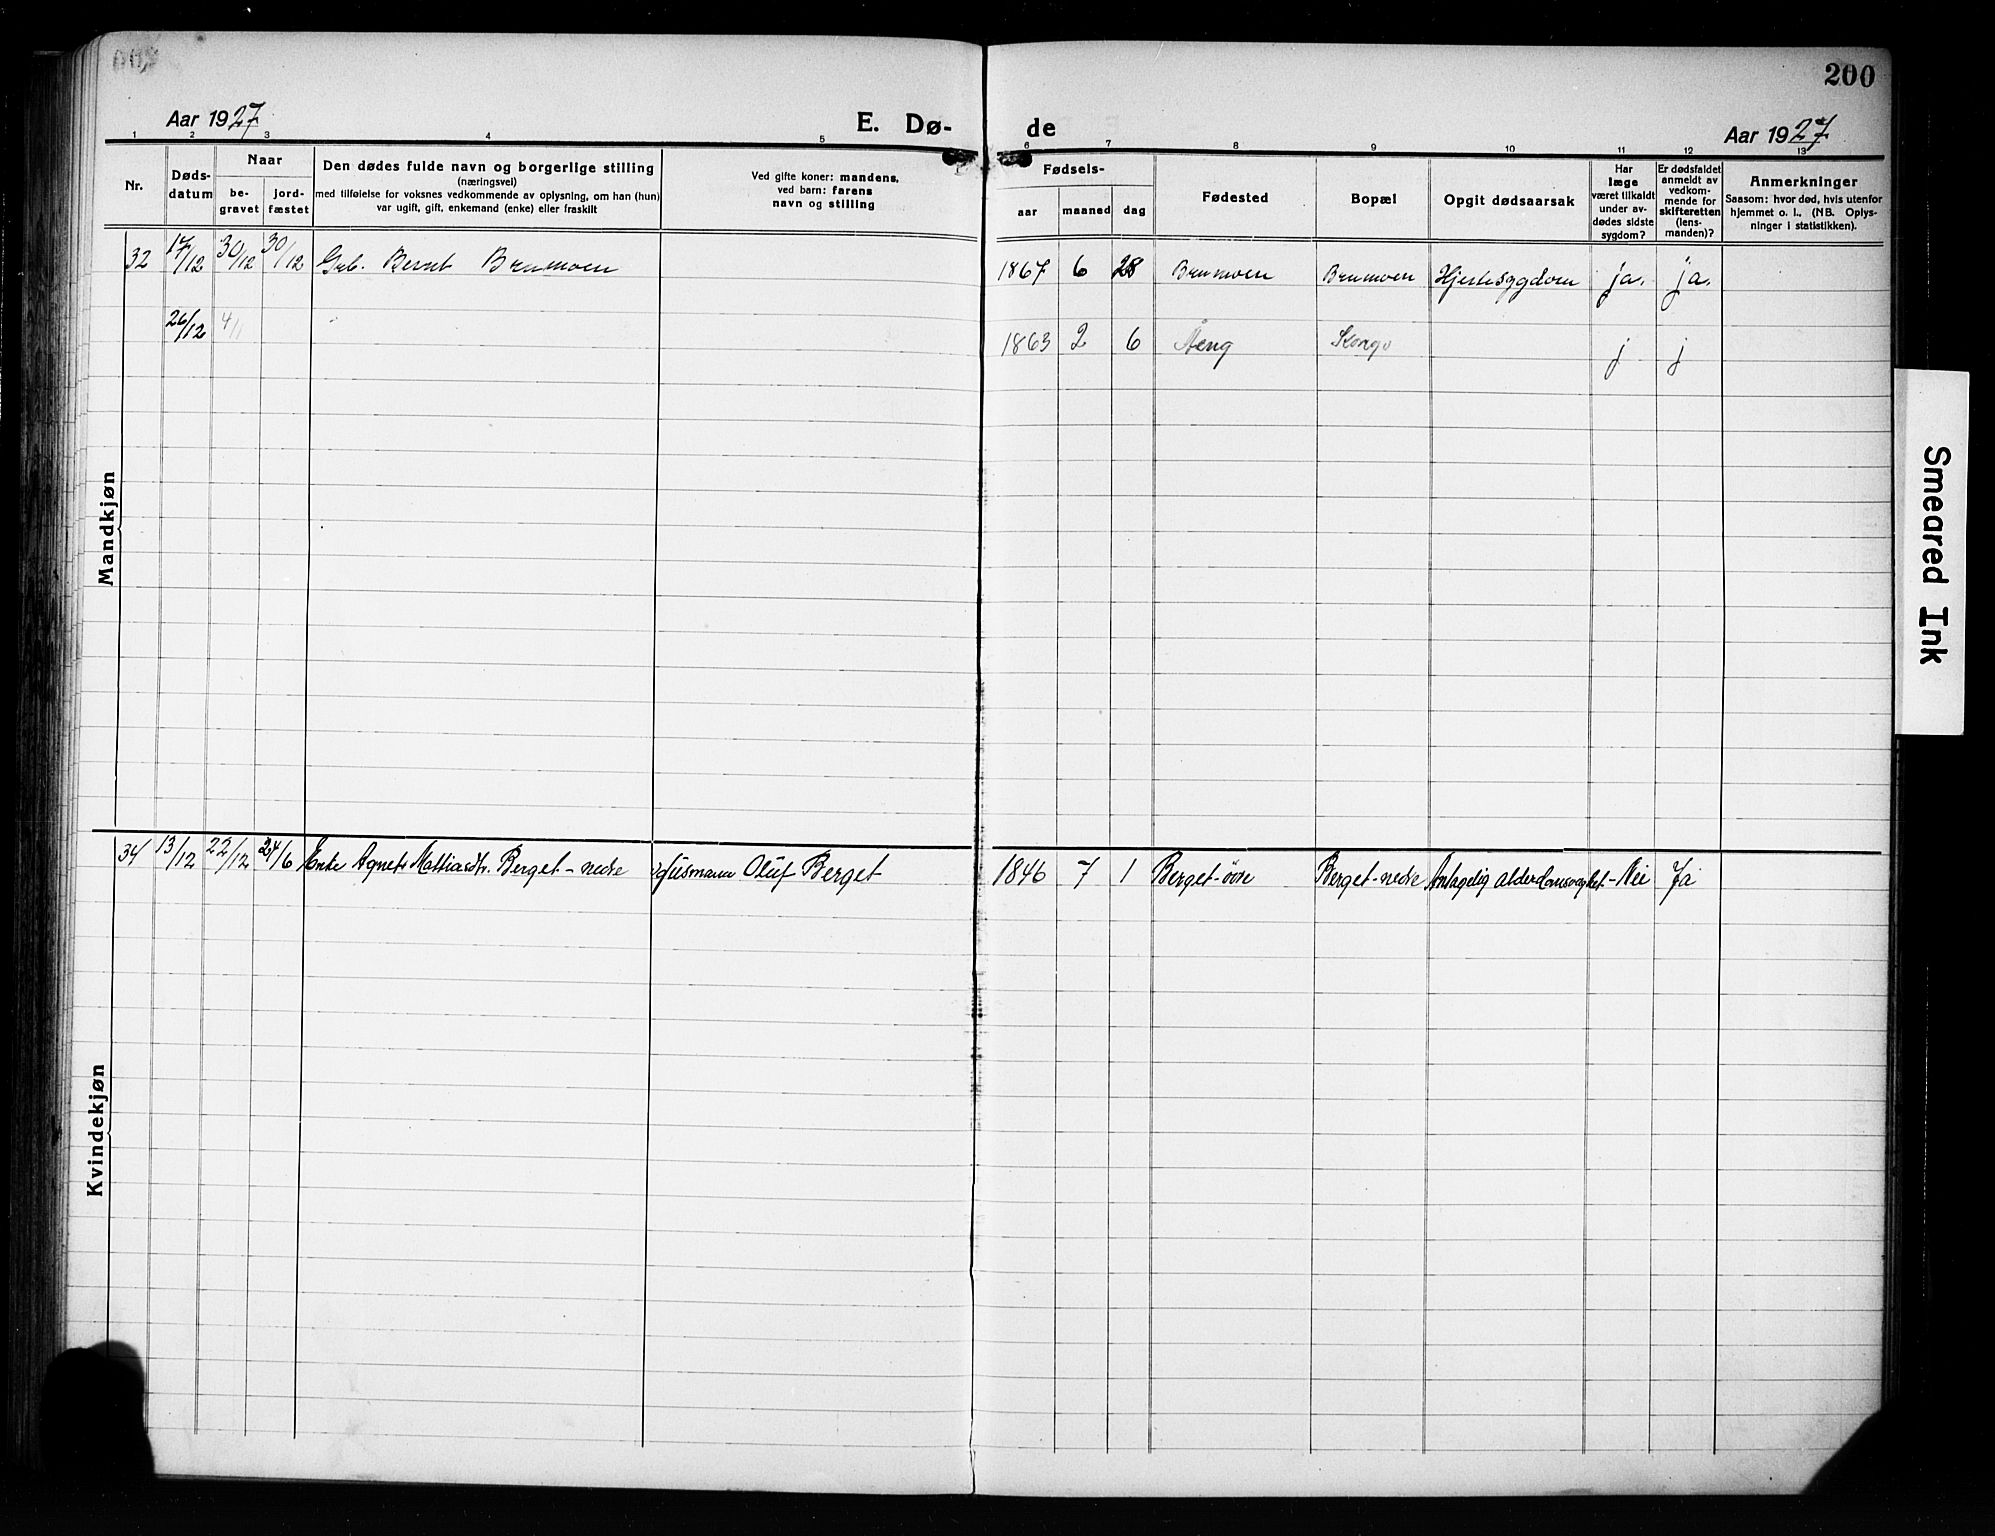 200
Aar 1927
E. Dø-
de
Aar 1927
1 2 3 4 5 6 7 8 9 10 11 12 13
Nr.
Døds-
datum
Naar
be-
gravet
jord-
fæstet
Den dødes fulde navn og borgerlige stilling
(næringsvei)
med tilføielse for voksnes vedkommende av oplysning, om han (hun)
var ugift, gift, enkemand (enke) eller fraskilt
Ved gifte koner: mandens,
ved barn: farens
navn og stilling
Fødsels-
aar maaned dag
Fødested
Bopæl
Opgit dødsaarsak
Har
læge
været tilkaldt
under av-
dødes sidste
sygdom?
Er dødsfaldet
anmeldt av
vedkom-
mende for
skifteretten
(lens-
manden)?
Anmerkninger
Saasom: hvor død, hvis utenfor
hjemmet o. l., (NB. Oplys-
ninger i statistikken).
Mandkjøn
32 17/12 30/12 30/12 Grb. Bernt Brumoen 1867 6 28 Brumoen Brumoen Hjertesygdom ja. ja.
26/12 4/1 1863 2 6 j j
Kvindekjøn
34 13/12 22/12 24/6 Enke Agnete Mattiasdtr. Berget - nedre Husmann Oluf Berget 1846 7 1 Berget - övre Berget - nedre Antagelig alderdomsvaghet - Nei Ja
Smeared Ink